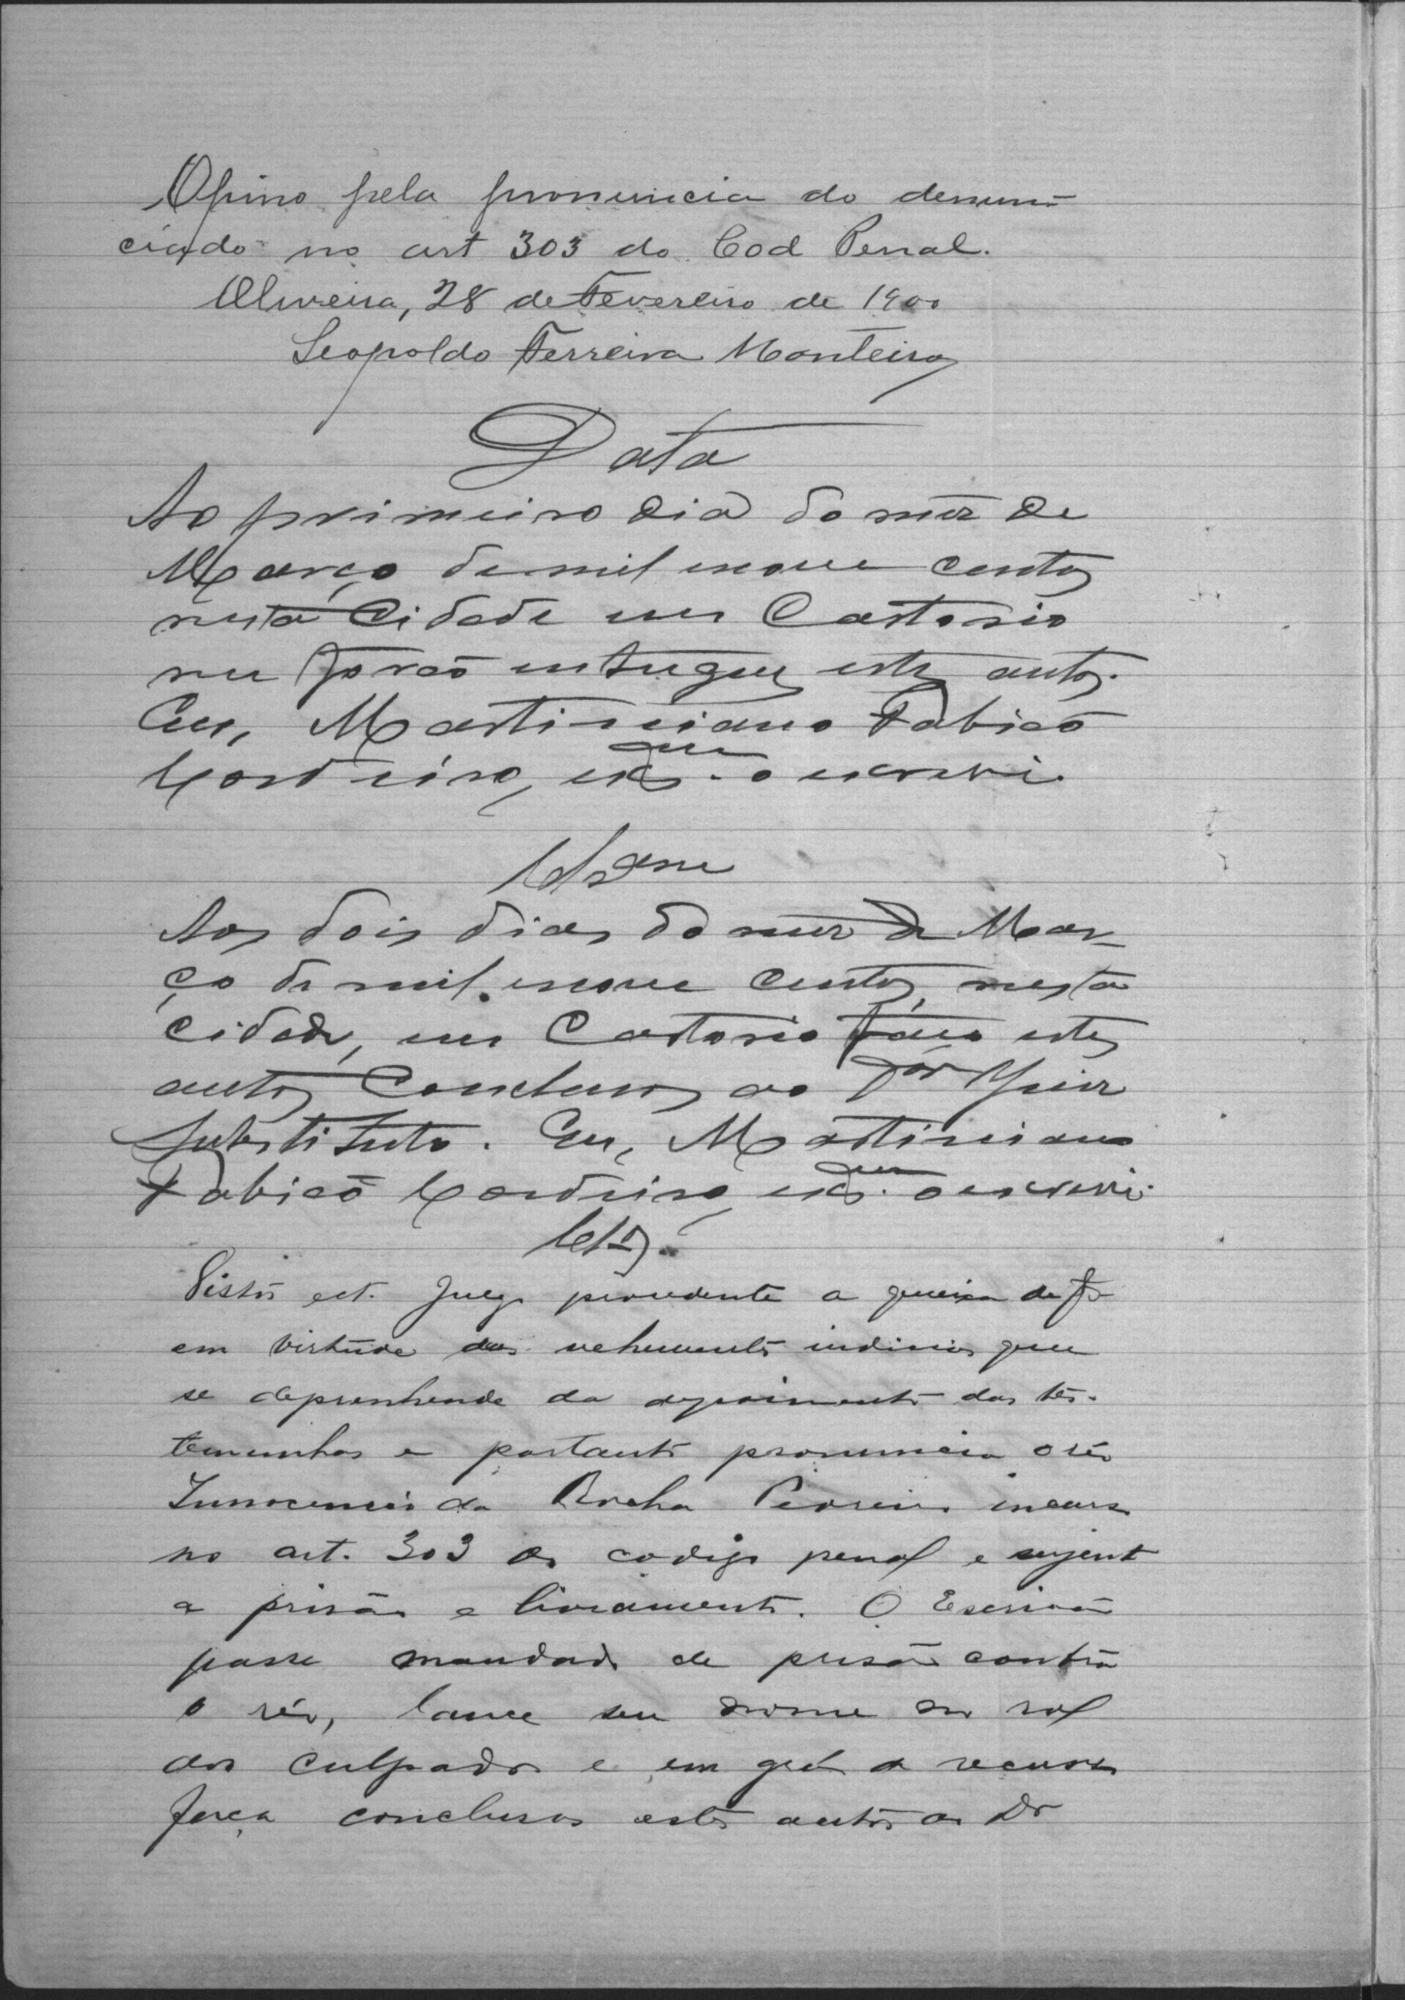 Opino pela pronuncia do denun-
ciado no art 303 do Cod Penal.
Oliveira, 28 de Fevereiro de 1900
Leopoldo Ferreira Monteiro
Data
Ao primeiro dia do mez de
Março de mil e nove centos
nesta Cidade em Cartorio
me forão entregues estes autos.
Eu, Martiniano Fabião
Cordeiro, escam. o escrevi.
Clsam
Aos dois dias do mez de Mar-
ço de mil e nove centos, nesta
cidade, em Cartorio faço estes
autos Conclusos ao Dor Juiz
Substituto. Eu, Martiniano
Fabião Cordeiro, escam. o escrevi.
Clos.
Vistos ect. Julgo procedente a queixa de f
em virtude dos vehementes indicios que
se deprehende do depoimento das tes-
temunhas e portanto pronuncio o réo
Innocencio da Rocha Pereira incurso
no art. 303 do codigo penal e sujeito
a prisão e livramento. O Escrivão
passe mandado de prisão contra
o réo, lance seu nome no rol
dos culpados e em gráo de recurso
faça conclusos estes autos ao Dr